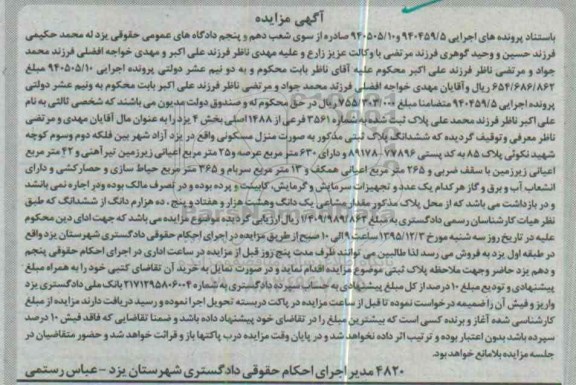 آگهی مزایده
باستناد پرونده های اجرایی ۹۴۰۴۵۹/۵ و ۹۴۰۵۰۵/۱۰ صادره از سوی شعب دهم و پنجم دادگاه های عمومی حقوقی یزد له محمد حکیمی
فرزند حسین و وحید گوهری فرزند مرتضی با وکالت عزیز زارع و علیه مهدی ناظر فرزند علی اکبر و مهدی خواجه افضلی فرزند محمد
جواد و مرتضی ناظر فرزند علی اکبر محکوم علیه آقای ناظر بابت محکوم و به دو نیم عشر دولتی پرونده اجرایی ۹۴۰۵۰۵/۱۰ مبلغ
۶۵۴/۶۸۶/۸۶۲ ریال و آقایان مهدی خواجه افضلی فرزند محمد جواد و مرتضی ناظر فرزند علی اکبر بابت محکوم به ونیم عشر دولتی
پرونده اجرایی ۹۴۰۴۵۹/۵ متضامنا مبلغ ۷۵۵/۳۰۳/۰۰۰ ریال در حق محکوم له و صندوق دولت مدیون می باشند که شخصی ثالثی به نام
علی اکبر ناظر فرزند محمد علی پلاک ثبت شده به شماره ۳۵۶۱ فرعی از ۱۴۸۸ اصلی بخش ۴ یزد را به عنوان مال آقایان مهدی و مرتضی
ناظر معرفی و توقیف گردیده که ششدانگ پلاک ثبتی مذکور به صورت منزل مسکونی واقع در یزد آزاد شهر بین فلکه دوم وسوم کوچه
شهید نکوئی پلاک ۸۵ به کد پستی ۷۷۸۹۶-۸۹۱۷۸ و دارای ۶۳۰ متر مربع عرصه و ۲۵ متر مربع اعیانی زیرزمین تیرآهنی و ۴۲ متر مربع
اعیانی زیرزمین با سقف ضربی و ۲۶۵ متر مربع اعیانی همکف و ۱۳ متر مربع سربام و ۳۶۵ متر مربع حیاط سازی و حصارکشی و دارای
انشعاب آب و برق و گاز هر کدام یک عدد و تجهیزات سرمایش و گرمایش، کابینت و پرده بوده و در تصرف مالک بوده ودر اجاره نمی باشد
و در بازداشت می باشد که از محل پلاک مذکور مقدار مشاعی یک دانگ وهشت هزار و هفتاد و پنج ، ده هزارم دانگ از ششدانگ که طبق
نظر هیات کارشناسان رسمی دادگستری به مبلغ ۱/۴۰۹/۹۸۹/۸۶۲ ریال ارزیابی گردیده موضوع مزایده می باشد که جهت ادای دین محکوم
علیه در تاریخ روز سه شنبه مورخ ۱۳۹۵/۱۲/۳ ساعت ۹ الی ۱۰ صبح از طریق مزایده در اجرای احکام حقوقی دادگستری شهرستان یزد واقع
در طبقه اول یزد به فروش می رسد لذا طالبین می توانند ظرف مدت پنج روز قبل از مزایده در ساعت اداری در اجرای احکام حقوقی پنجم
و دهم یزد حاضر وجهت ملاحظه پلاک ثبتی موضوع مزایده اقدام نماید و در صورت تمایل به خرید آن تقاضای کتبی خود را به همراه مبلغ
پیشنهادی و تودیع مبلغ ۱۰ درصد از کل مبلغ پیشنهادی به حساب سپرده دادگستری به شماره ۲۱۷۱۲۹۵۸۰۶۰۰۴ بانک ملی دادگستری یزد
واریز و فیش آن را ضمیمه درخواست نموده تا قبل از ساعت مزایده در پاکت دربسته تحویل اجرا نموده و رسید دریافت دارند مزایده از مبلغ
کارشناسی شده آغاز و برنده کسی است که بیشترین مبلغ را در تقاضای خود پیشنهاد داده باشد و ضمنا تقاضایی که فاقد فیش ۱۰ درصد
سپرده باشد بدون اعتبار بوده و ترتیب اثر داده نخواهد شد و در پایان وقت مزایده درب پاکتها باز و قرائت خواهد شد و حضور متقاضیان در
جلسه مزایده بلامانع خواهد بود.
۴۸۲۰ مدیر اجرای احکام حقوقی دادگستری شهرستان یزد - عباس رستمی